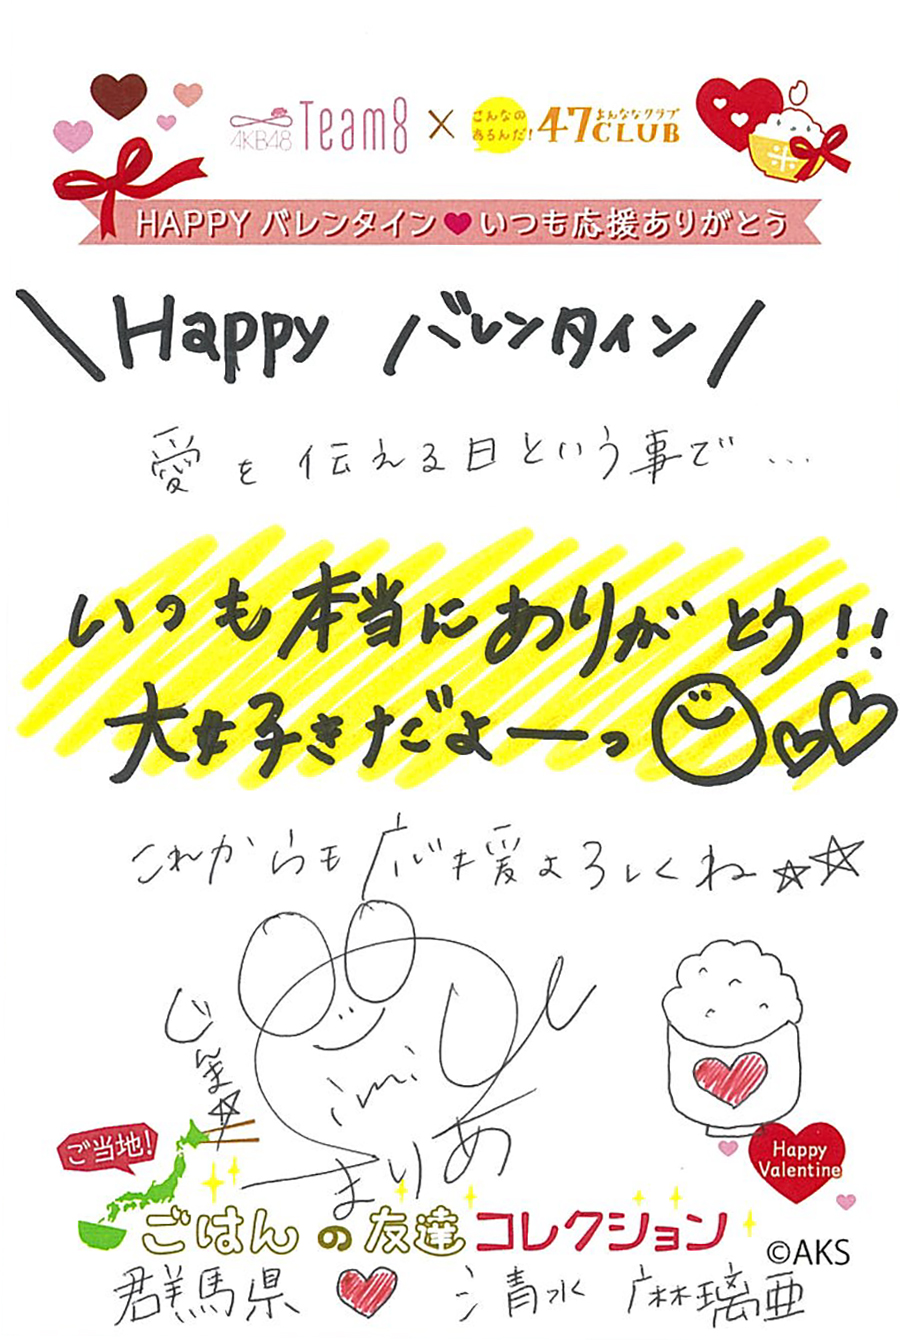 AKB48 Team8 × こんなの あるんだ! 47CLUB よんななクラブ
HAPPY バレンタイン♥いつも応援ありがとう
\Happy バレンタイン/
愛を伝える日という事で...
いつも本当にありがとう!!
大好きだよーっ
これからも応援よろしくね☆☆
じんま☆
まりあ
ご当地!
Happy
Valentine
ごはんの友達コレクション
©AKS
群馬県 ♥ 清水 麻璃亜